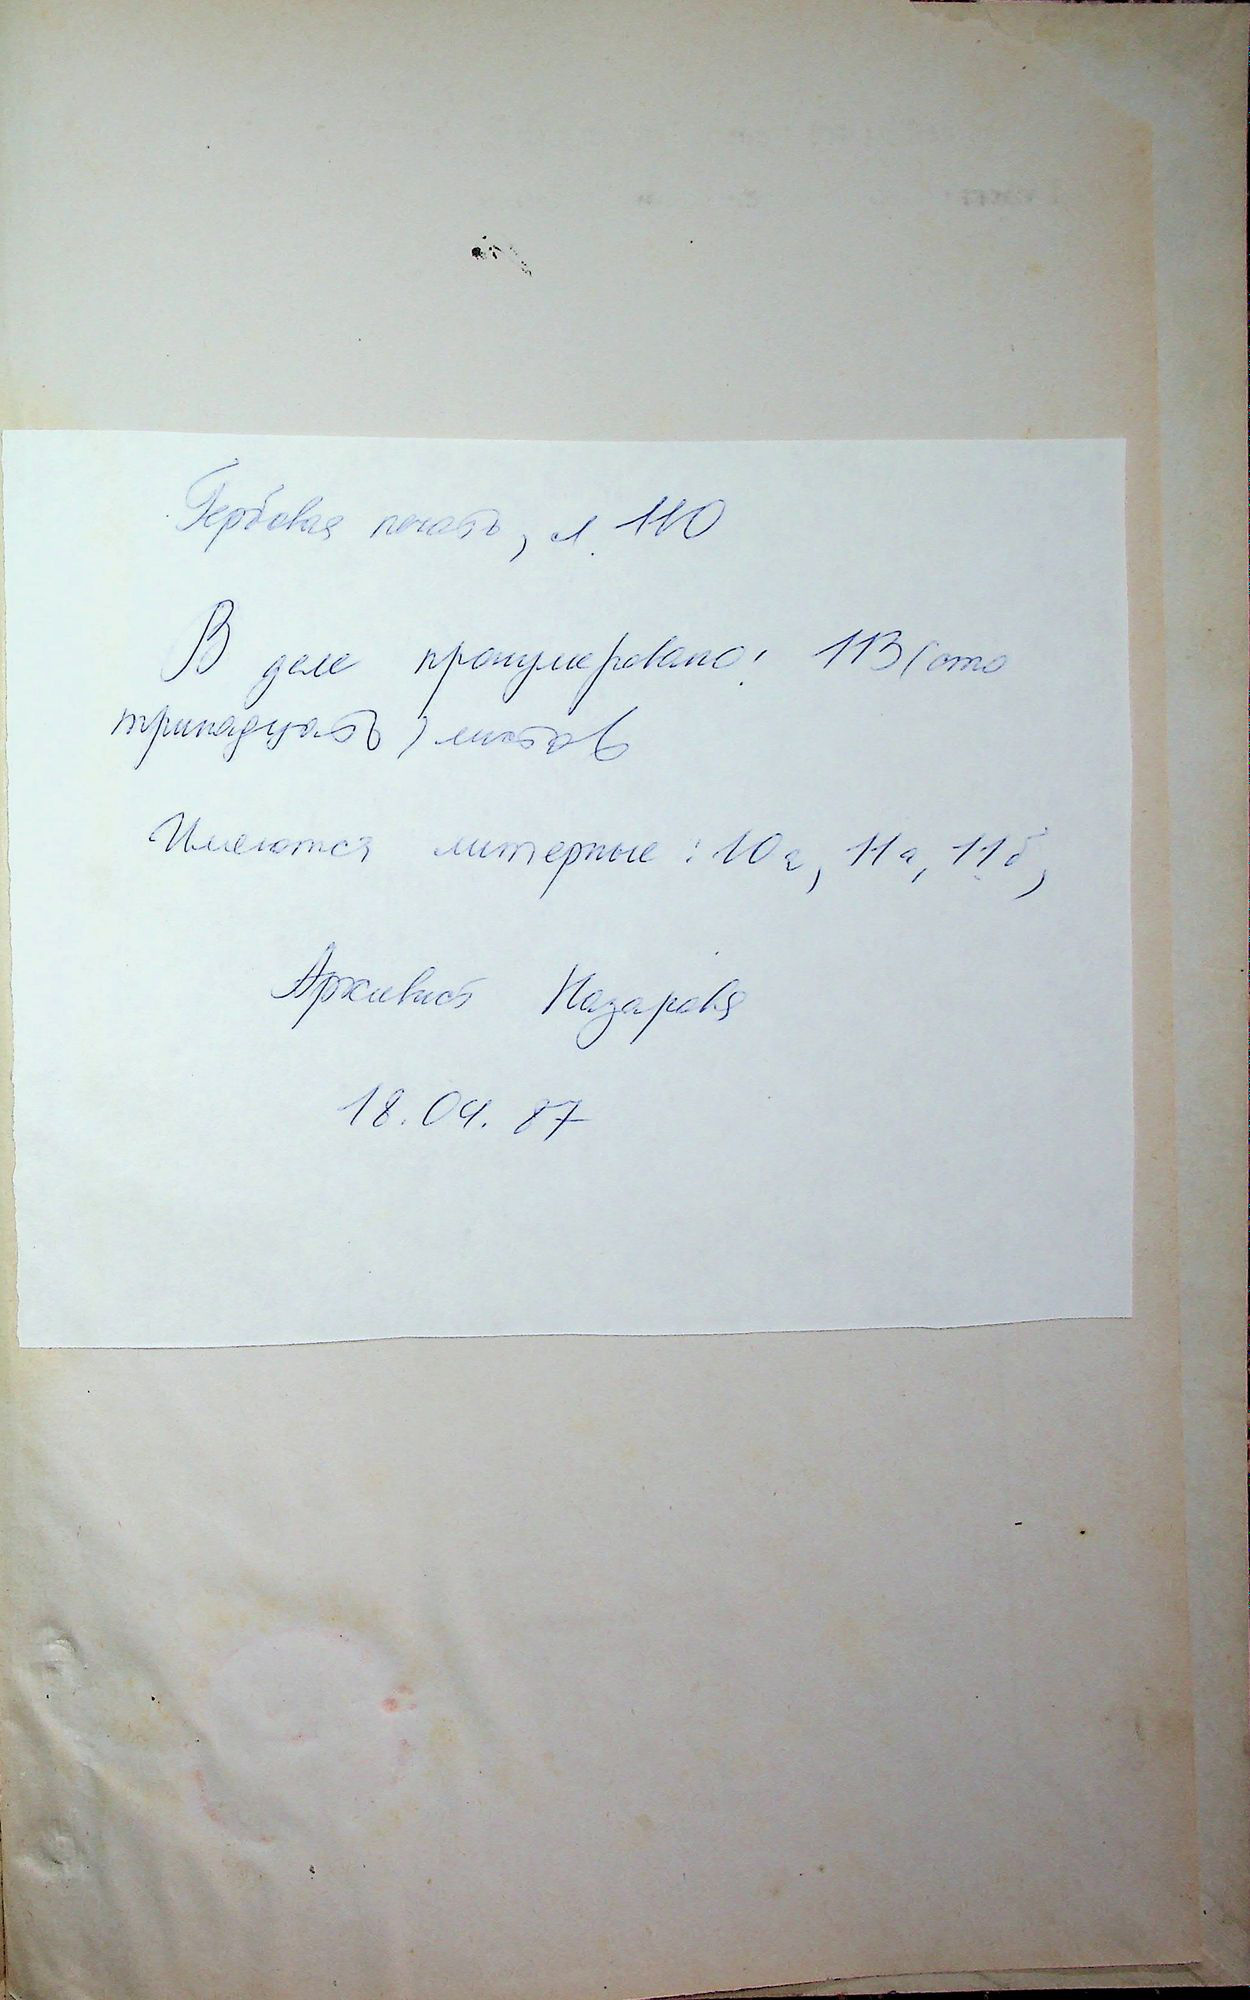 Гербовая печать, л. 110
В деле пронумеровано: 113 (сто
тринадцать) листов
Имеются литерные: 10а, 11а, 11б,
Архивист Назарова
18.04.87